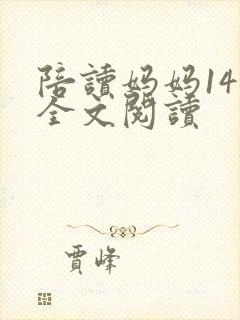 陪讀妈妈14
全文閱讀
賈峰